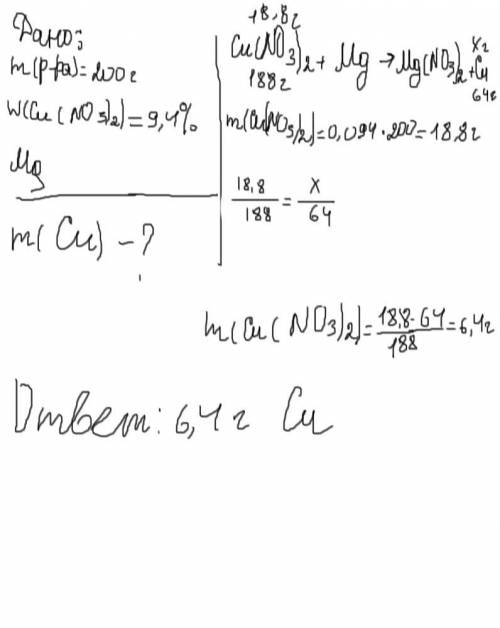 Дано:
m(р-ра)=200г
W(Cu(NO3)2)=9,4%
Mg
m(Cu)-?
18,8г
Cu(NO3)2+Mg→Mg(NO3)2+Cu
xг
188г
64г
m(Cu(NO3)2)=0,094·200=18,8г
18,8/188=x/64
m(Cu(NO3)2)=18,8·64/188=6,4г
Ответ: 6,4г Cu